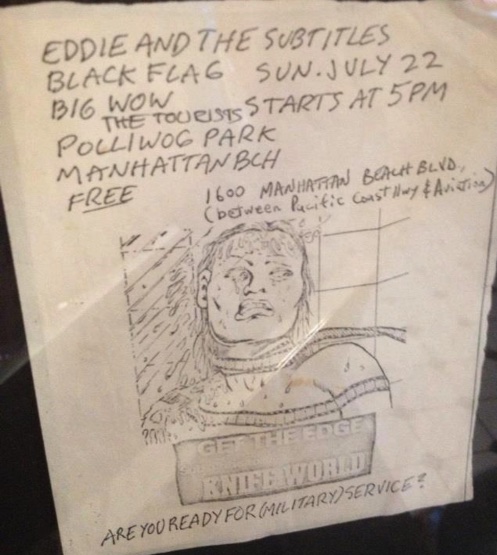 EDDIE AND THE SUBTITLES
BLACK FLAG SUN. JULY 22
BIG WOW
THE TOURISTS STARTS AT 5PM
POLLIWOG PARK
MANHATTAN BCH
FREE
1600 MANHATTAN BEACH BLVD.
(between Pacific Coast Hwy & Aviation)
GET THE EDGE
KNIFE WORLD
ARE YOU READY FOR (MILITARY) SERVICE?